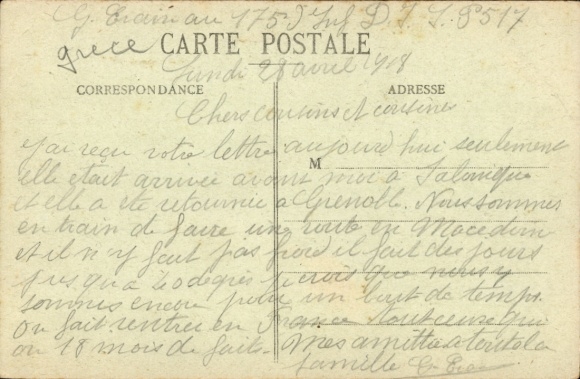 G. Erain au 175e Inf D. I S. P 517
grece
CARTE POSTALE
Lundi 28 avril 1918
CORRESPONDANCE ADRESSE
Chers cousins et cousines
j'ai reçu votre lettre aujourd'hui seulement
M
elle était arrivée avant moi a Salonique
et elle a ete retournée a Grenoble. Nous sommes
en train de faire une route en Macedoine
et il n'y fait pas froid il fait des jours
jusqu'a 40 degres je crois que nous y
sommes encore pour un bout de temps.
On fait rentrer en France tout ceux qui
on 18 mois de faits. Mes amitiés a toute la
famille G. Erain